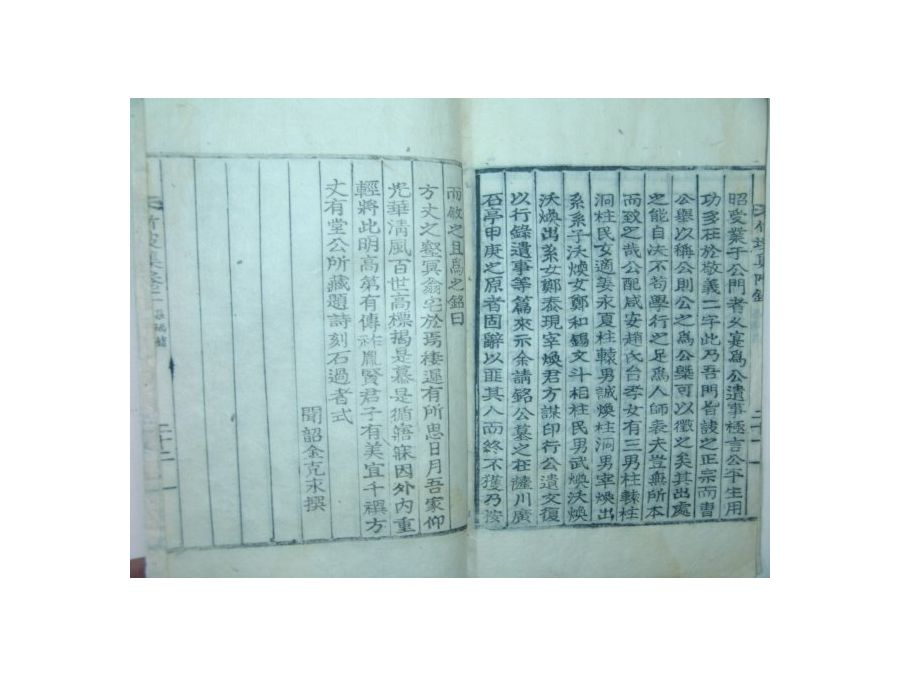 昭受業于公門者父寔爲公遺事極言公平生用
功多在於敬義二字此乃吾門旨訣之正宗而曺
公擧以稱公則公之爲公槩可以徵之矣其出處
之能自決不苟學行之足爲人師表夫豈無所本
而致之哉公配咸安趙氏台孝女有三男柱轅柱
洞柱民女適姜永夏柱轅男誠煥柱洞男宰煥出
系系子沃煥女鄭和錫文斗相柱民男武煥沃煥
沃煥出系女鄭泰現宰煥君方謀印行公遺文復
以行錄遺事等篇來示余請銘公墓之在薩川廣
石亭甲庚之原者固辭以匪其人而終不獲乃按
二十一
而敘之且爲之銘曰
方丈之壑冥翁宅於焉棲遲有所思日月吾家仰
光華清風百世高標揭是慕是循寤寐因外內重
輕將此明高第有傳祚胤賢君子有美宜千禩方
丈有堂公所藏題詩刻石過者式
聞韶金克永撰
二十二